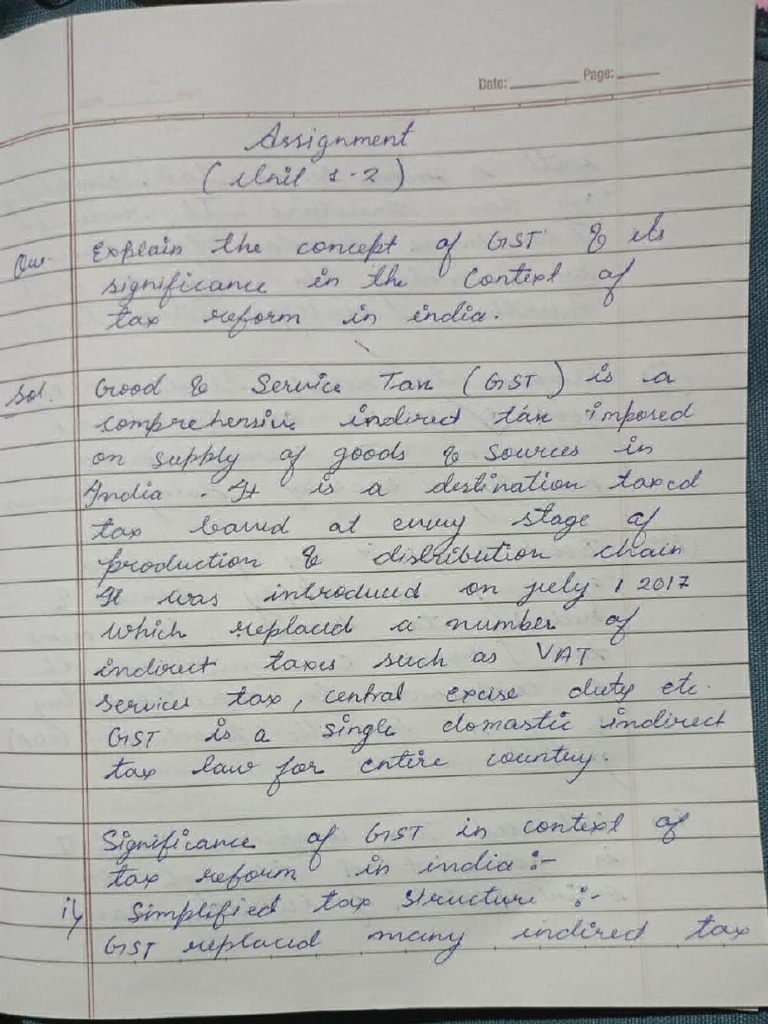 Date: Page:
Assignment
(Unit 1-2)
Que. Explain the concept of GST & its
significance in the context of
tax reform in india.
Sol. Good & Service Tax (GST) is a
comprehensive indirect tax imposed
on supply of goods & sources in
India. It is a destination taxed
tax based at every stage of
production & distribution chain
It was introduced on july 1 2017
which replaced a number of
indirect taxes such as VAT.
services tax, central excise duty etc.
GST is a single domastic indirect
tax law for entire country.
Significance of GST in context of
tax reform in india :-
i) Simplified tax structure :-
GST replaced many indired tax